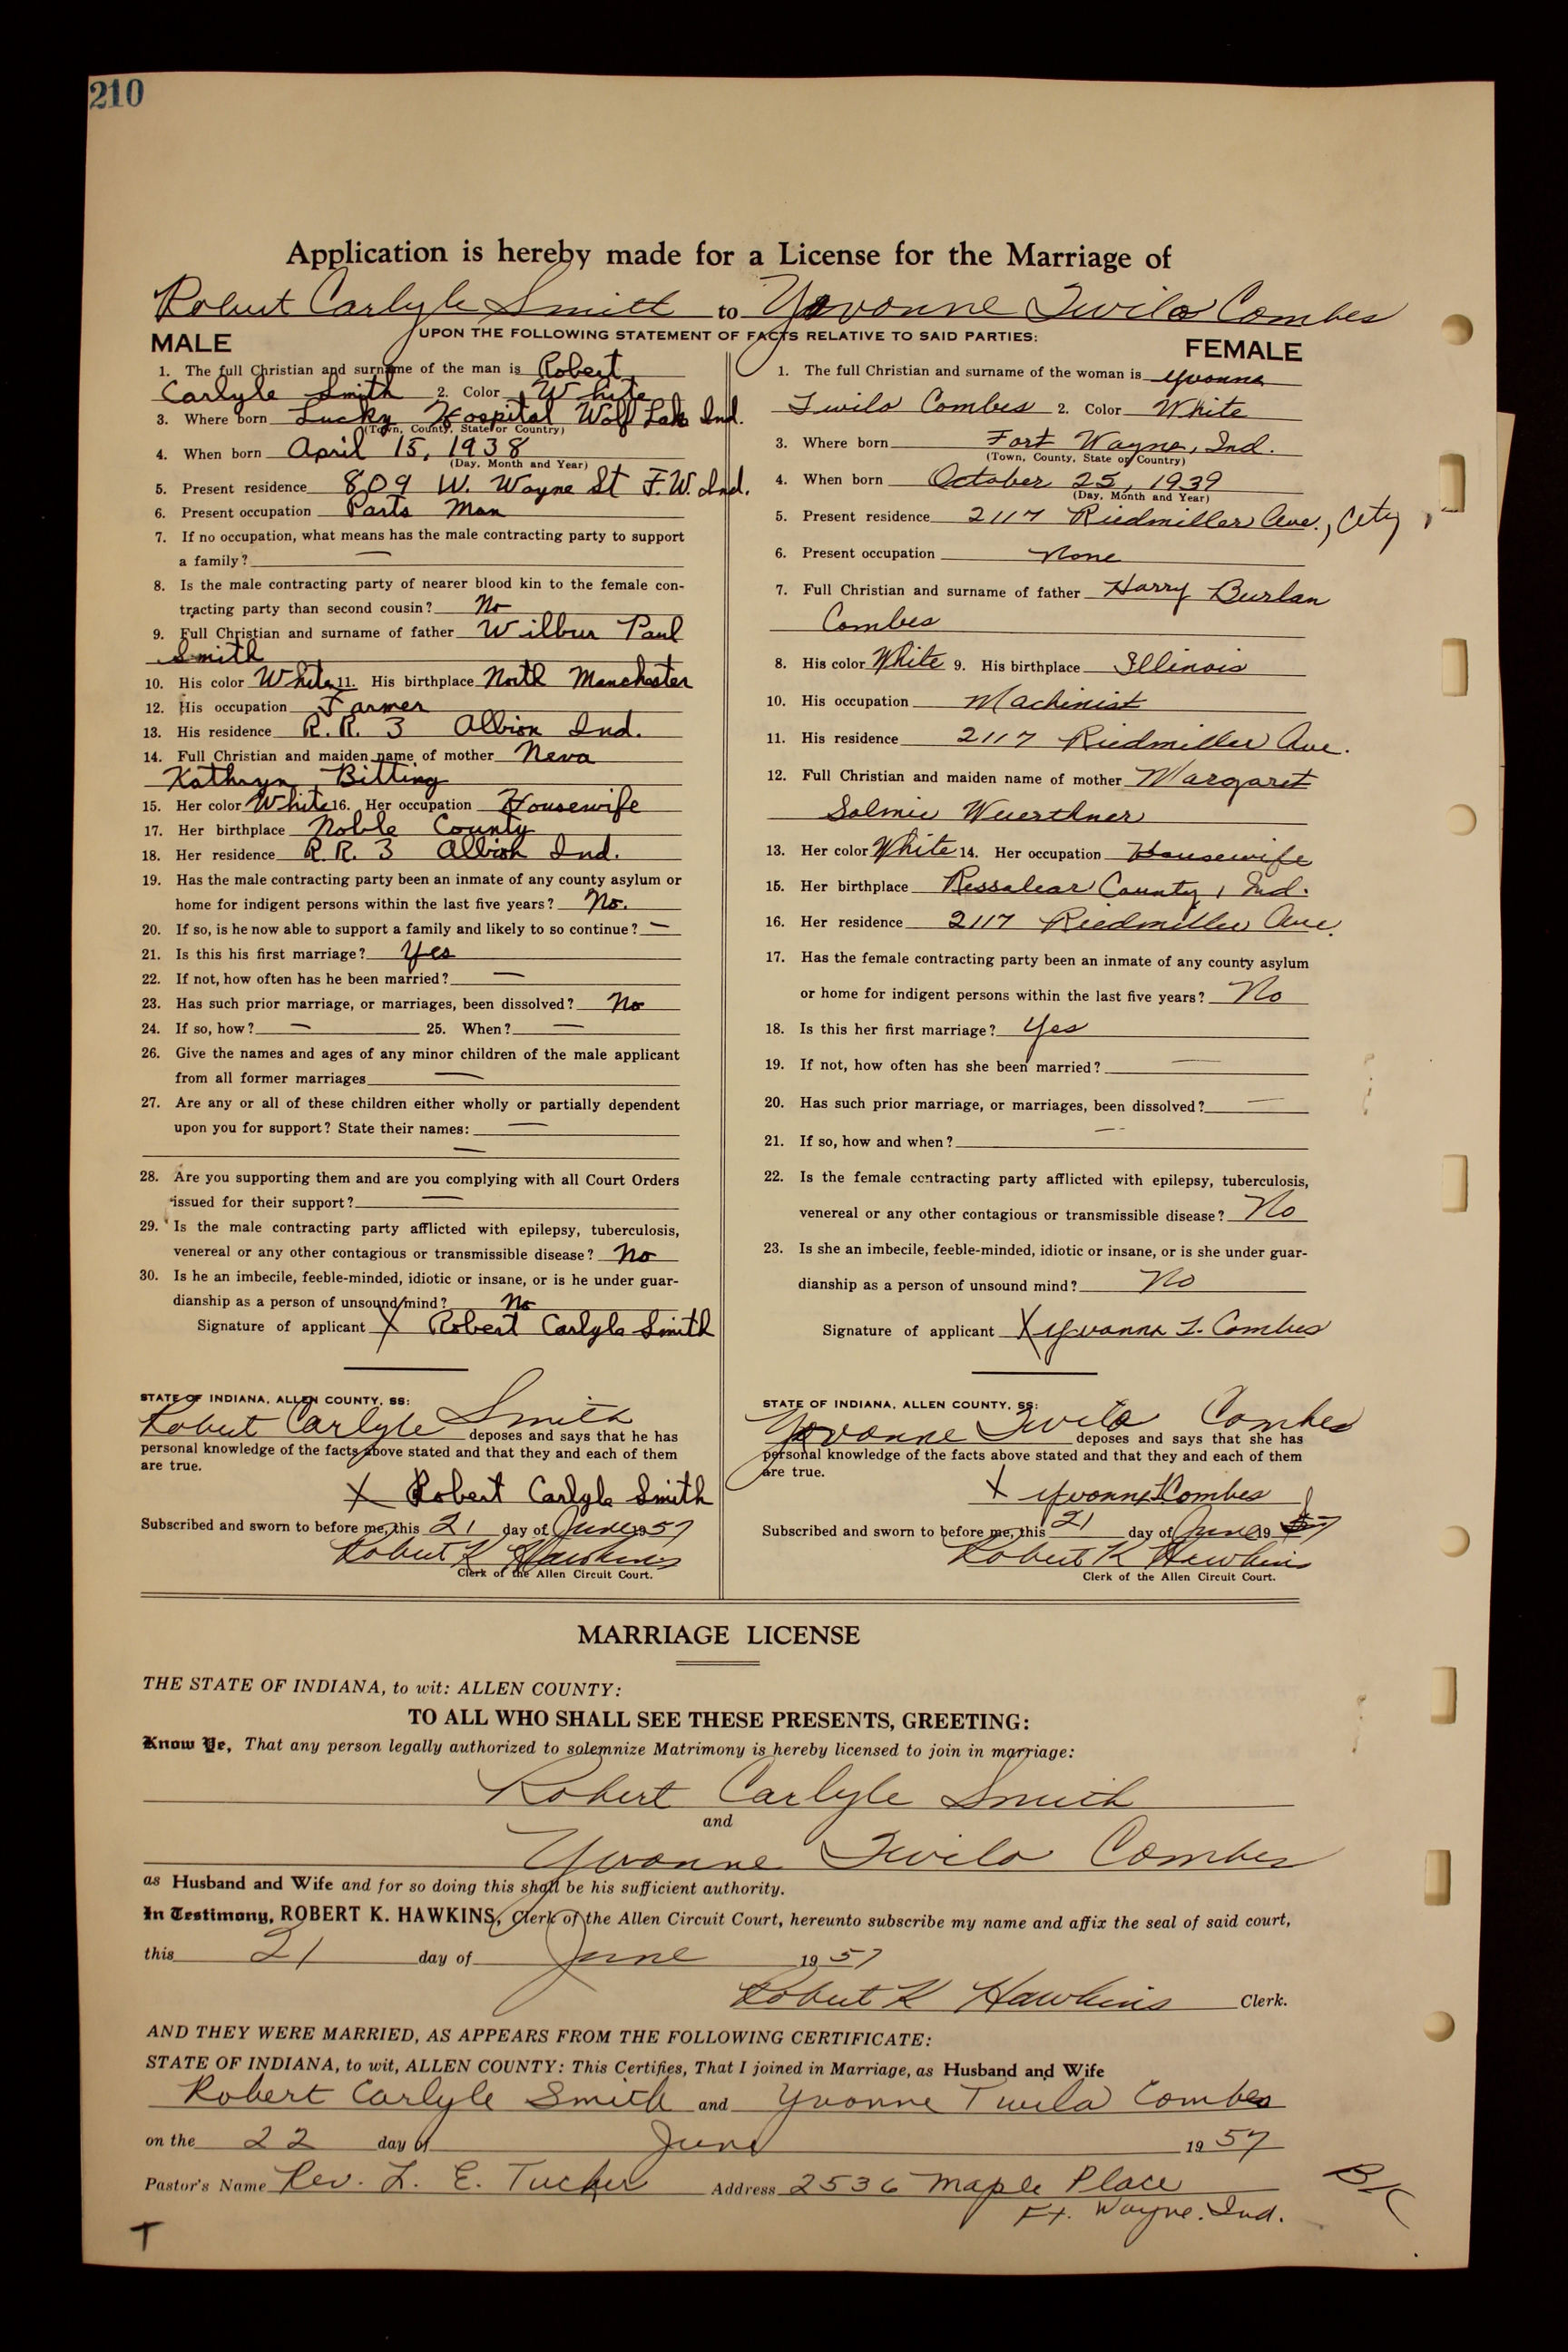 210
Application is hereby made for a License for the Marriage of
Robert Carlyle Smith to Yvonne Twila Combes
UPON THE FOLLOWING STATEMENT OF FACTS RELATIVE TO SAID PARTIES:
MALE
1. The full Christian and surname of the man is Robert
Carlyle Smith 2. Color White
3. Where born Lucky Hospital Wolf Lake Ind.
(Town, County, State or Country)
4. When born April 15, 1938
(Day, Month and Year)
5. Present residence 809 W. Wayne St F.W. Ind.
6. Present occupation Parts Man
7. If no occupation, what means has the male contracting party to support
a family? —
8. Is the male contracting party of nearer blood kin to the female con-
tracting party than second cousin? No
9. Full Christian and surname of father Wilbur Paul
Smith
10. His color White 11. His birthplace North Manchester
12. His occupation Farmer
13. His residence R.R. 3 Albion Ind.
14. Full Christian and maiden name of mother Neva
Kathryn Bitting
15. Her color White 16. Her occupation Housewife
17. Her birthplace Noble County
18. Her residence R.R. 3 Albion Ind.
19. Has the male contracting party been an inmate of any county asylum or
home for indigent persons within the last five years? No.
20. If so, is he now able to support a family and likely to so continue? —
21. Is this his first marriage? Yes
22. If not, how often has he been married? —
23. Has such prior marriage, or marriages, been dissolved? No
24. If so, how? — 25. When? —
26. Give the names and ages of any minor children of the male applicant
from all former marriages —
27. Are any or all of these children either wholly or partially dependent
upon you for support? State their names: —
—
28. Are you supporting them and are you complying with all Court Orders
issued for their support? —
29. Is the male contracting party afflicted with epilepsy, tuberculosis,
venereal or any other contagious or transmissible disease? No
30. Is he an imbecile, feeble-minded, idiotic or insane, or is he under guar-
dianship as a person of unsound mind? No
Signature of applicant X Robert Carlyle Smith
STATE OF INDIANA, ALLEN COUNTY, SS:
Robert Carlyle Smith deposes and says that he has
personal knowledge of the facts above stated and that they and each of them
are true.
X Robert Carlyle Smith
Subscribed and sworn to before me, this 21 day of June 1957
Robert K Hawkins
Clerk of the Allen Circuit Court.
FEMALE
1. The full Christian and surname of the woman is Yvonne
Twila Combes 2. Color White
3. Where born Fort Wayne, Ind.
(Town, County, State or Country)
4. When born October 25, 1939
(Day, Month and Year)
5. Present residence 2117 Riedmiller Ave., City
6. Present occupation None
7. Full Christian and surname of father Harry Burlan
Combes
8. His color White 9. His birthplace Illinois
10. His occupation Machinist
11. His residence 2117 Riedmiller Ave.
12. Full Christian and maiden name of mother Margaret
Wuerthner
13. Her color White 14. Her occupation Housewife
15. Her birthplace County, Ind.
16. Her residence 2117 Riedmiller Ave.
17. Has the female contracting party been an inmate of any county asylum
or home for indigent persons within the last five years? No
18. Is this her first marriage? Yes
19. If not, how often has she been married? —
20. Has such prior marriage, or marriages, been dissolved? —
21. If so, how and when? —
22. Is the female contracting party afflicted with epilepsy, tuberculosis,
venereal or any other contagious or transmissible disease? No
23. Is she an imbecile, feeble-minded, idiotic or insane, or is she under guar-
dianship as a person of unsound mind? No
Signature of applicant X Yvonne T. Combes
STATE OF INDIANA, ALLEN COUNTY, SS:
Yvonne Twila Combes deposes and says that she has
personal knowledge of the facts above stated and that they and each of them
are true.
X Yvonne T Combes
Subscribed and sworn to before me, this 21 day of June 1957
Robert K Hawkins
Clerk of the Allen Circuit Court.
MARRIAGE LICENSE
THE STATE OF INDIANA, to wit: ALLEN COUNTY:
TO ALL WHO SHALL SEE THESE PRESENTS, GREETING:
Know Ye, That any person legally authorized to solemnize Matrimony is hereby licensed to join in marriage:
Robert Carlyle Smith
and
Yvonne Twila Combes
as Husband and Wife and for so doing this shall be his sufficient authority.
In Testimony, ROBERT K. HAWKINS, Clerk of the Allen Circuit Court, hereunto subscribe my name and affix the seal of said court,
this 21 day of June 1957
Robert K Hawkins Clerk.
AND THEY WERE MARRIED, AS APPEARS FROM THE FOLLOWING CERTIFICATE:
STATE OF INDIANA, to wit, ALLEN COUNTY: This Certifies, That I joined in Marriage, as Husband and Wife
Robert Carlyle Smith and Yvonne Twila Combes
on the 22 day of June 1957
Pastor's Name Rev. L. E. Tucker Address 2536 Maple Place
Ft. Wayne. Ind.
T